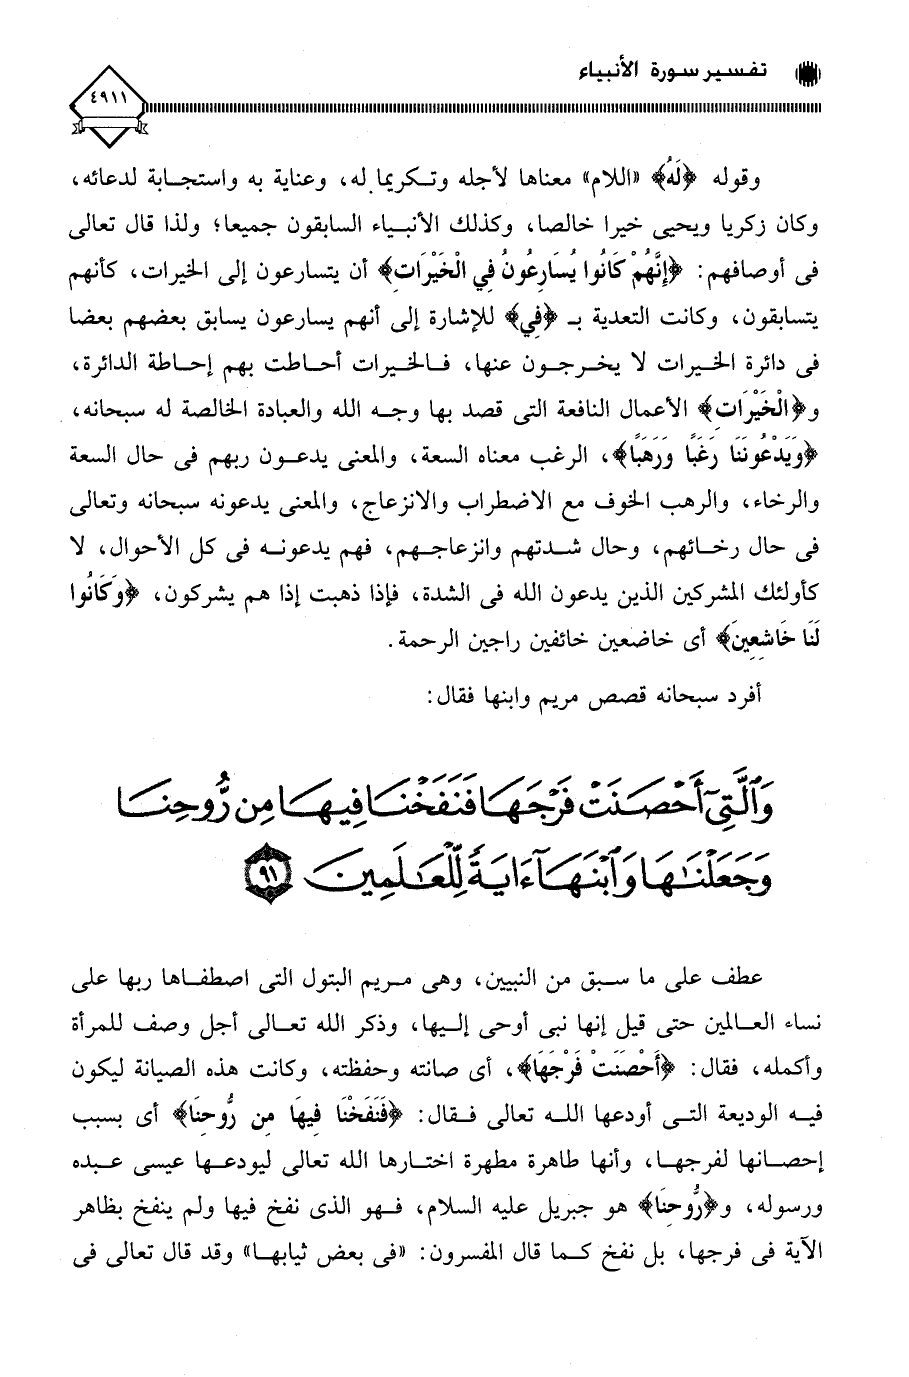 تفسير سورة الأنبياء
٤٩١١
وقوله ﴿لَهُ﴾ «اللام» معناها لأجله وتكريما له، وعناية به واستجابة لدعائه،
وكان زكريا ويحيى خيرا خالصا، وكذلك الأنبياء السابقون جميعا؛ ولذا قال تعالى
فى أوصافهم: ﴿إِنَّهُمْ كَانُوا يُسَارِعُونَ فِي الْخَيْرَاتِ﴾ أن يتسارعون إلى الخيرات، كأنهم
يتسابقون، وكانت التعدية بـ ﴿فِي﴾ للإشارة إلى أنهم يسارعون يسابق بعضهم بعضا
فى دائرة الخيرات لا يخرجون عنها، فالخيرات أحاطت بهم إحاطة الدائرة،
و﴿الْخَيْرَاتِ﴾ الأعمال النافعة التى قصد بها وجه الله والعبادة الخالصة له سبحانه،
﴿وَيَدْعُونَنَا رَغَبًا وَرَهَبًا﴾، الرغب معناه السعة، والمعنى يدعون ربهم فى حال السعة
والرخاء، والرهب الخوف مع الاضطراب والانزعاج، والمعنى يدعونه سبحانه وتعالى
فى حال رخائهم، وحال شدتهم وانزعاجهم، فهم يدعونه فى كل الأحوال، لا
كأولئك المشركين الذين يدعون الله فى الشدة، فإذا ذهبت إذا هم يشركون، ﴿وَكَانُوا
لَنَا خَاشِعِينَ﴾ أى خاضعين خائفين راجين الرحمة.
أفرد سبحانه قصص مريم وابنها فقال:
وَالَّتِىٓ أَحْصَنَتْ فَرْجَهَا فَنَفَخْنَا فِيهَا مِن رُّوحِنَا
وَجَعَلْنَٰهَا وَٱبْنَهَآ ءَايَةً لِّلْعَٰلَمِينَ ٩١
عطف على ما سبق من النبيين، وهى مريم البتول التى اصطفاها ربها على
نساء العالمين حتى قيل إنها نبى أوحى إليها، وذكر الله تعالى أجل وصف للمرأة
وأكمله، فقال: ﴿أَحْصَنَتْ فَرْجَهَا﴾، أى صانته وحفظته، وكانت هذه الصيانة ليكون
فيه الوديعة التى أودعها الله تعالى فقال: ﴿فَنَفَخْنَا فِيهَا مِن رُّوحِنَا﴾ أى بسبب
إحصانها لفرجها، وأنها طاهرة مطهرة اختارها الله تعالى ليودعها عيسى عبده
ورسوله، و﴿رُّوحِنَا﴾ هو جبريل عليه السلام، فهو الذى نفخ فيها ولم ينفخ بظاهر
الآية فى فرجها، بل نفخ كما قال المفسرون: «فى بعض ثيابها» وقد قال تعالى فى